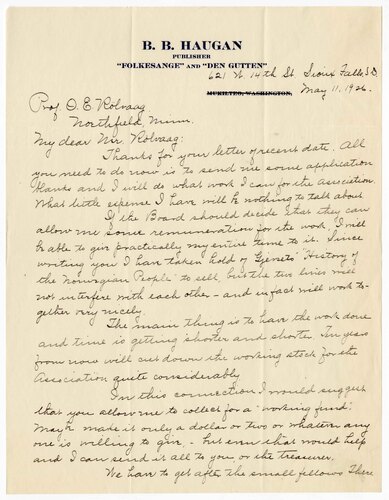 B. B. HAUGAN
PUBLISHER
"FOLKESANGE" AND "DEN GUTTEN"
621 W. 14th St. Sioux Falls, S.D.
MUKILTEO, WASHINGTON,
May 11, 1926.
Prof O. E. Rolvaag
Northfield, Minn.
My dear Mr. Rolvaag:
Thanks for your letter of recent date. All
you need to do now is to send me some application
blanks and I will do what work I can for the Association.
What little expense I have will be nothing to talk about.
If the Board should decide that they can
allow me some remuneration for the work I will
be able to give practically my entire time to it. Since
writing you I have taken hold of Gjerset's "History of
the Norwegian People" to sell, but the two lines will
not interfere with each other - and in fact will work to-
gether very nicely.
The main thing is to have the work done
and time is getting shorter and shorter. Ten years
from now will cut down the working stock for the
Association quite considerably.
In this connection I would suggest
that you allow me to collect for a "working fund",
Maybe made it only a dollar or two or whatever any
one is willing to give, - but even that would help
and I can send it all to you or the treasurer.
We have to get after the small fellows. There